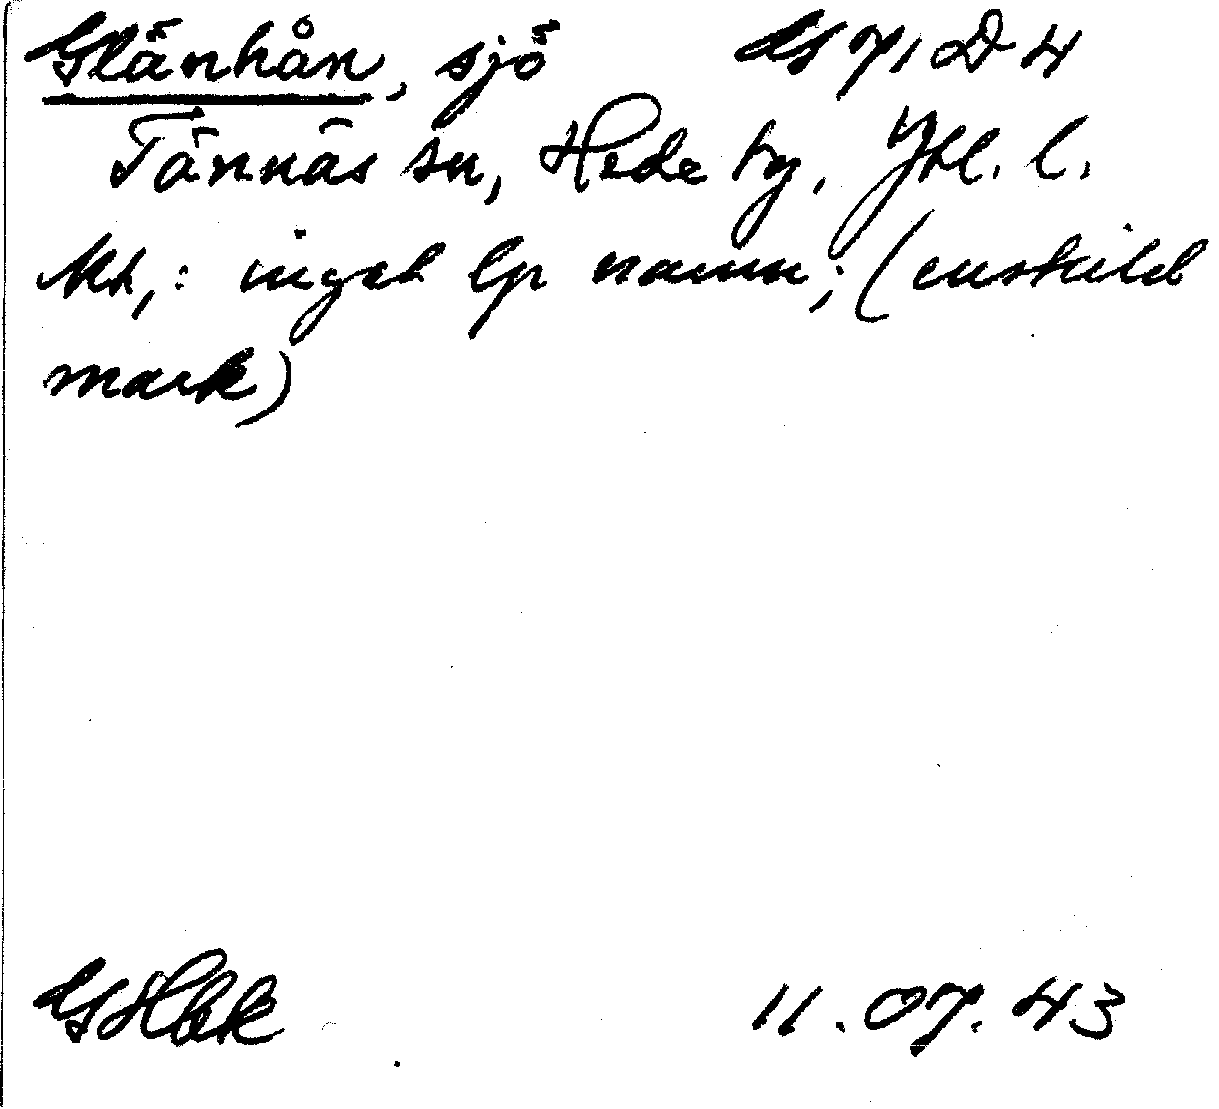 Glänhån, sjö GS 71 D 4
Tännäs sn, Hede tg, Jtl. l.
Mt,: inget lp namn; (enskild
mark)
GSHbk 11.07.43